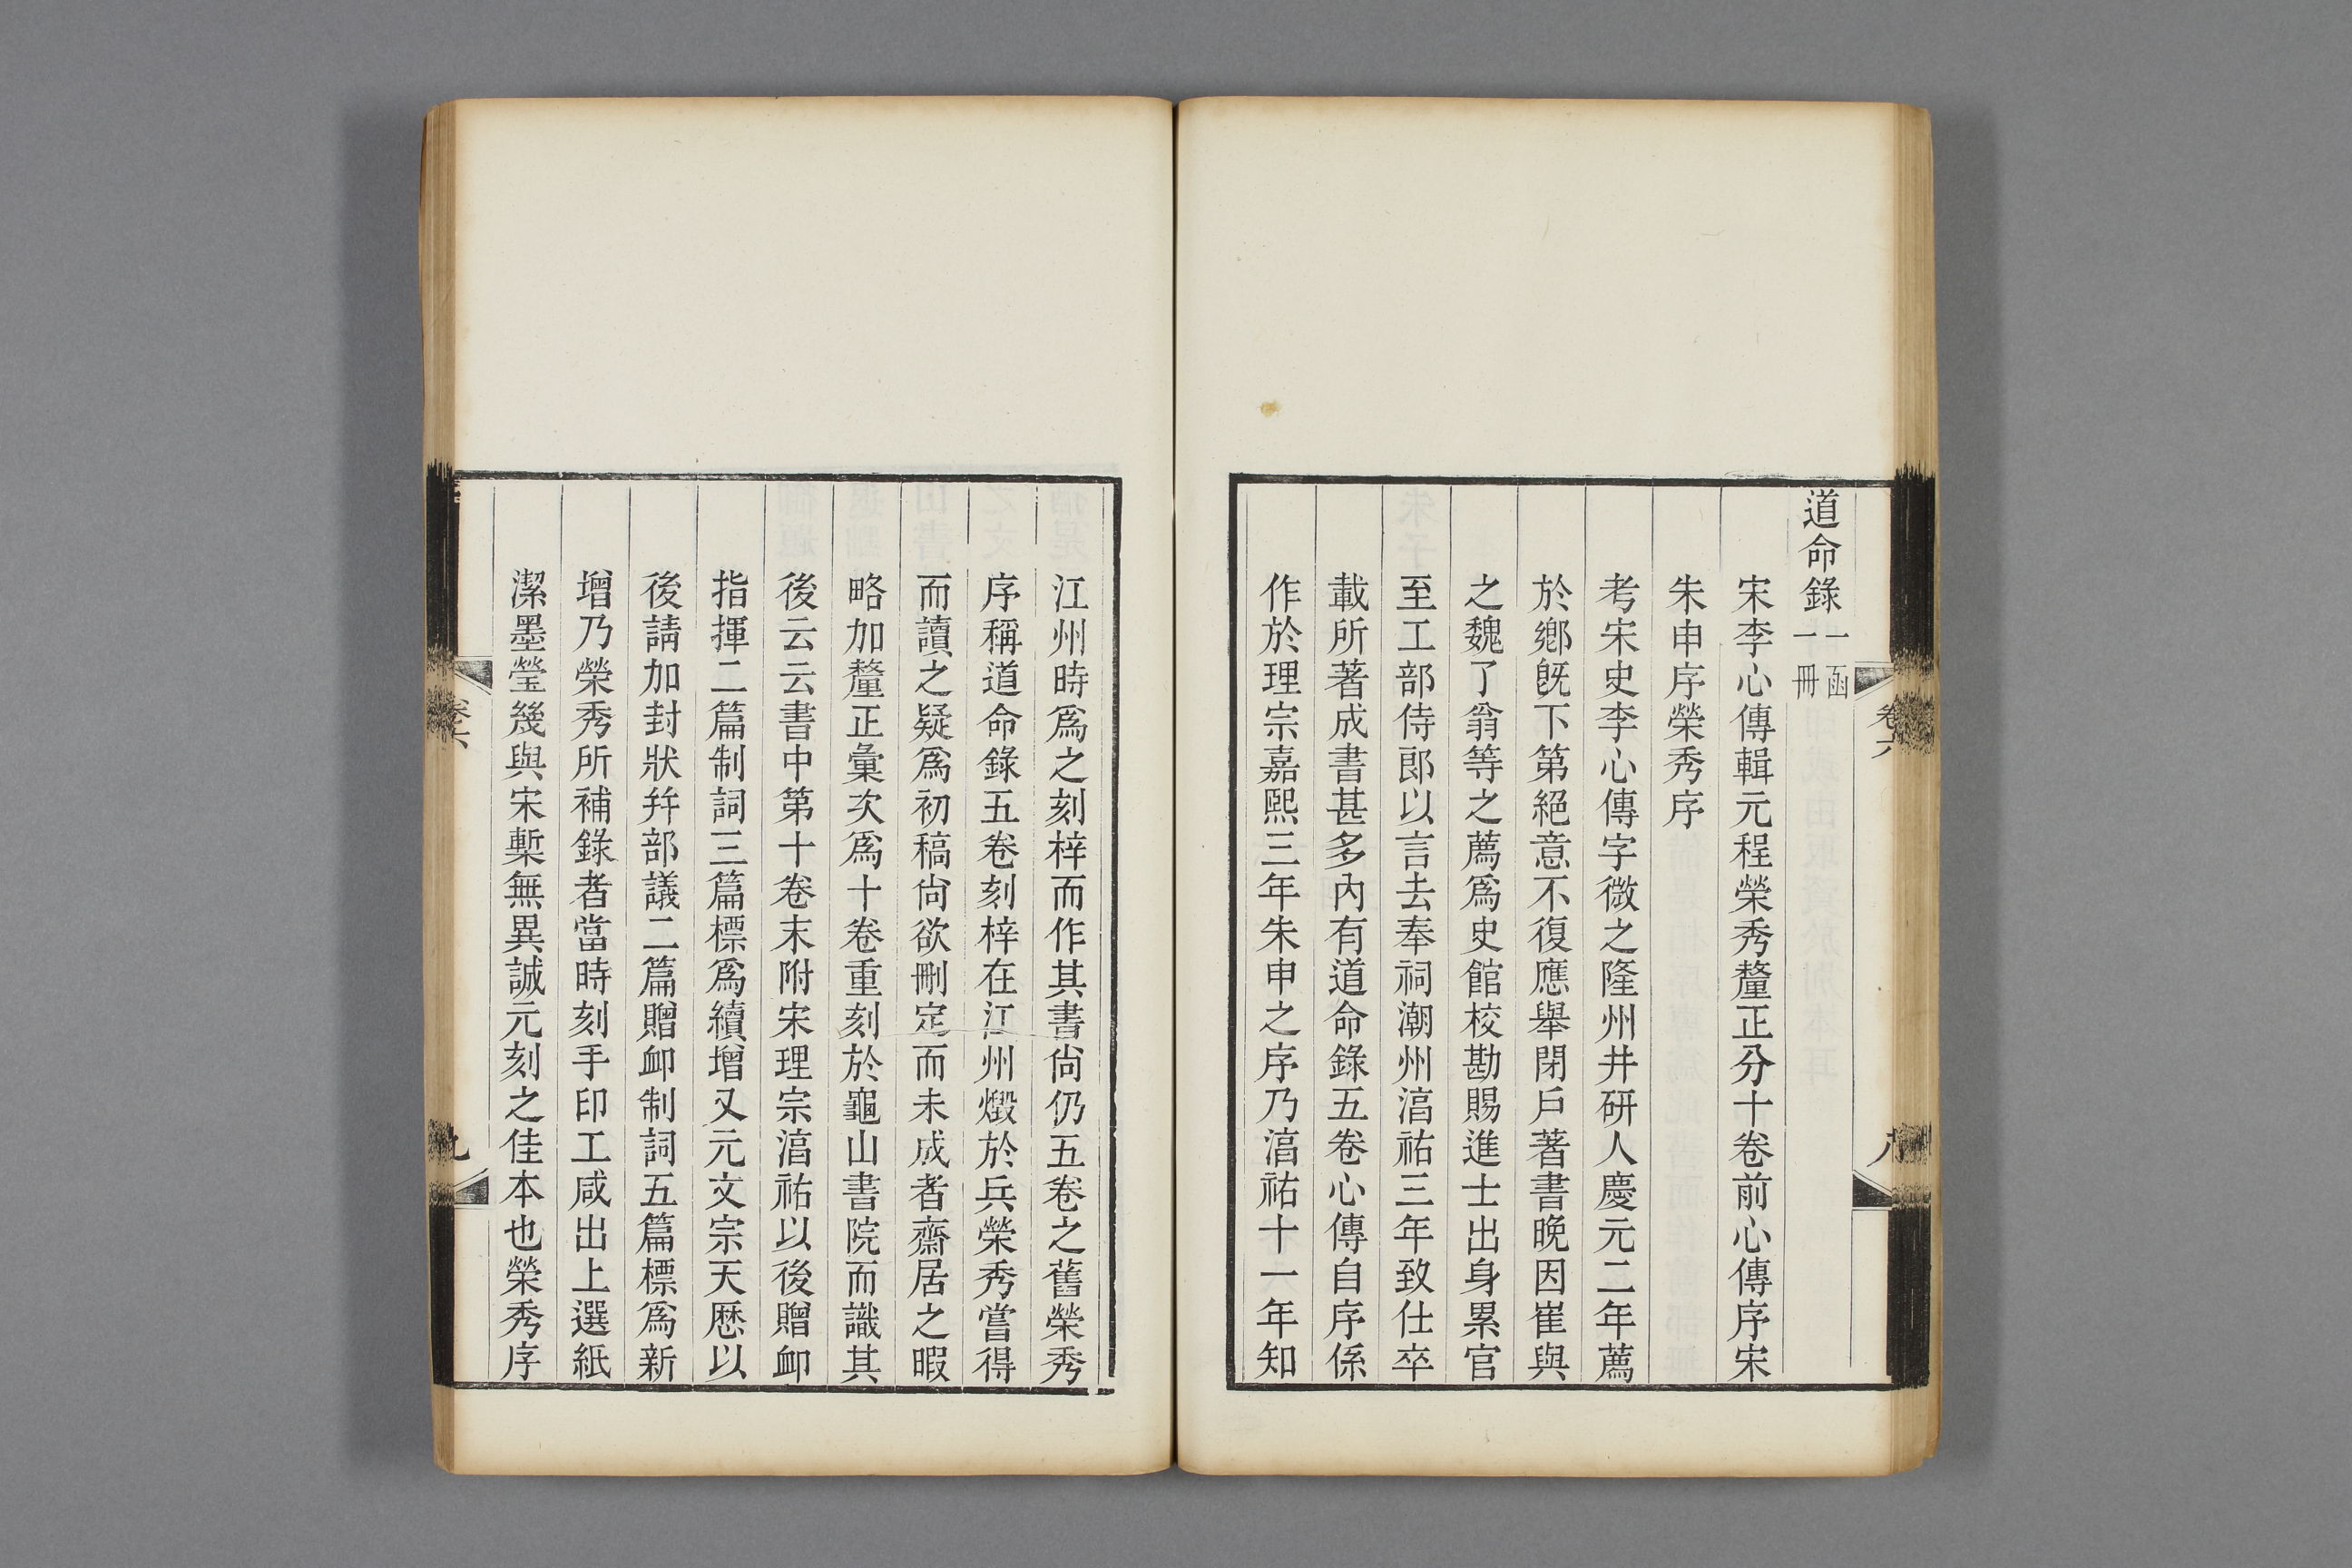 道命錄一函一冊
宋李心傳輯元程榮秀釐正分十卷前心傳序宋
朱申序榮秀序
考宋史李心傳字微之隆州井研人慶元二年薦
於鄉旣下第絕意不復應舉閉戶著書晚因崔與
之魏了翁等之薦爲史館校勘賜進士出身累官
至工部侍郎以言去奉祠潮州湻祐三年致仕卒
載所著成書甚多內有道命錄五卷心傳自序係
作於理宗嘉熙三年朱申之序乃湻祐十一年知
卷六
八
江州時爲之刻梓而作其書尙仍五卷之舊榮秀
序稱道命錄五卷刻梓在江州燬於兵榮秀嘗得
而讀之疑爲初稿尙欲刪定而未成者齋居之暇
略加釐正彙次爲十卷重刻於龜山書院而識其
後云云書中第十卷末附宋理宗湻祐以後贈卹
指揮二篇制詞三篇標爲續增又元文宗天厯以
後請加封狀幷部議二篇贈卹制詞五篇標爲新
增乃榮秀所補錄者當時刻手印工咸出上選紙
潔墨瑩幾與宋槧無異誠元刻之佳本也榮秀序
卷六
九